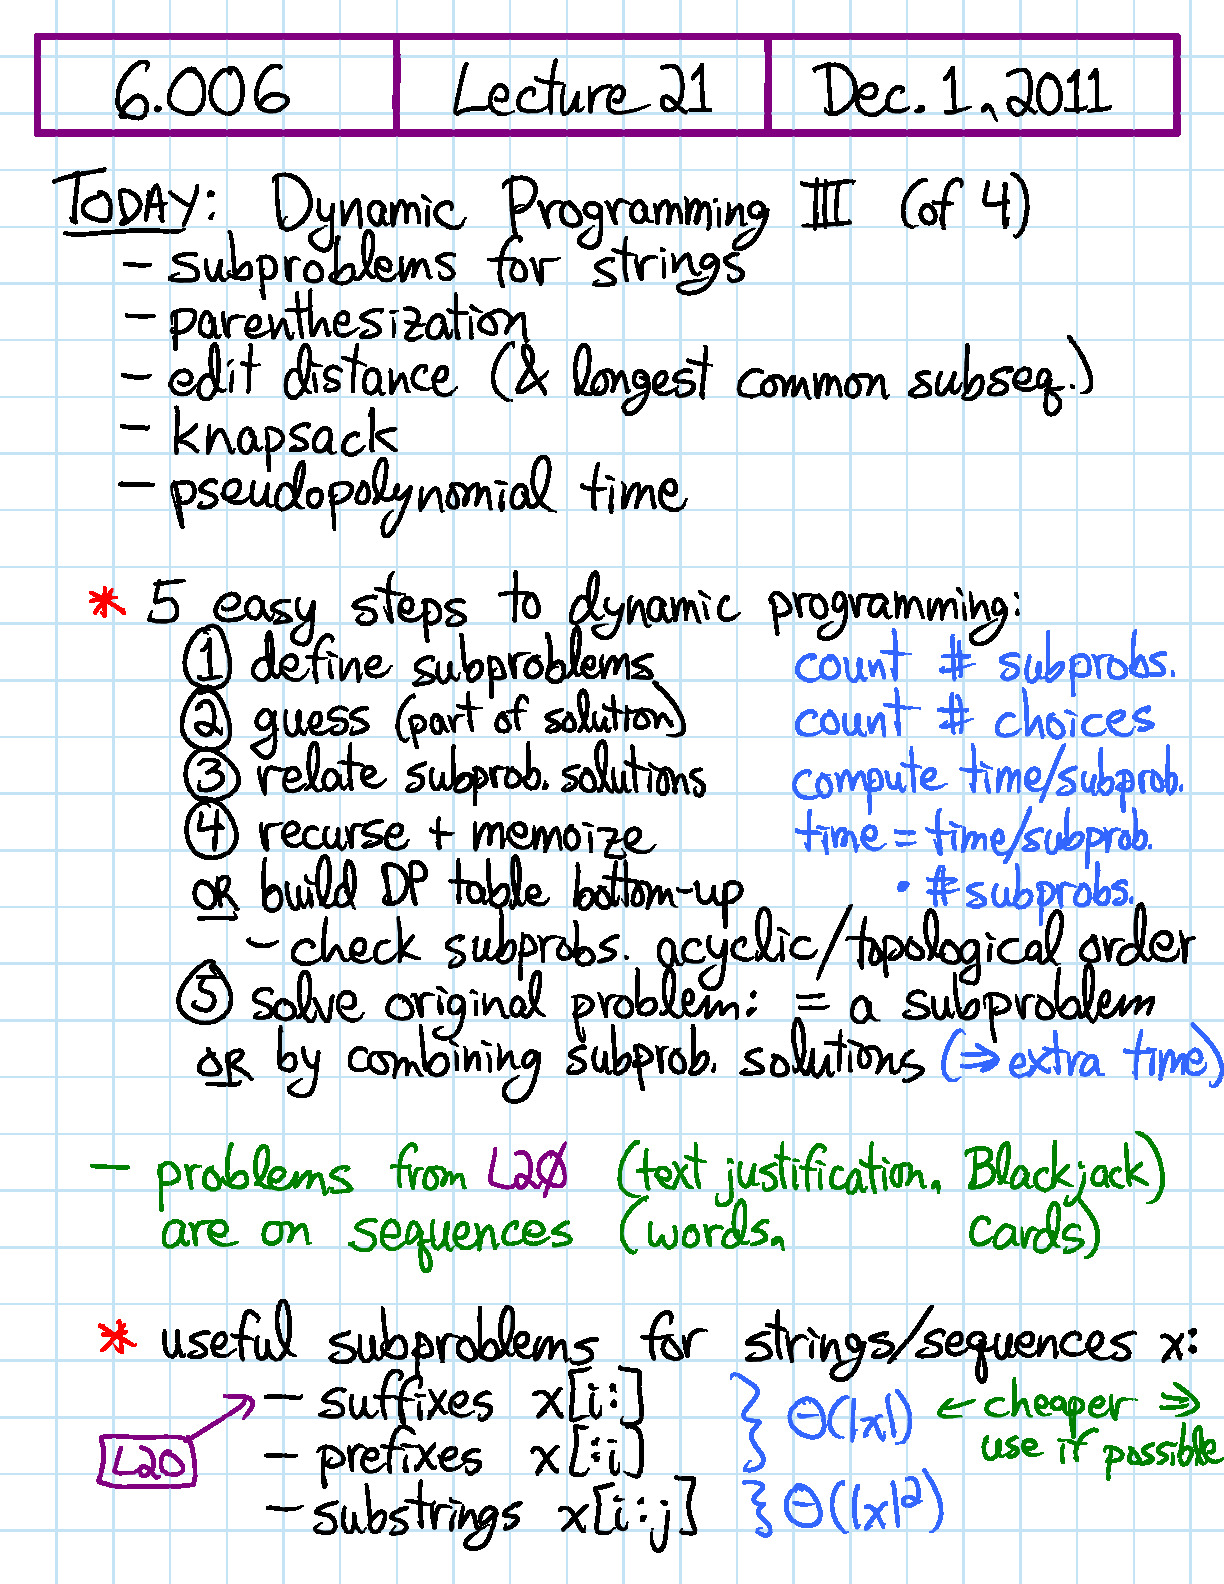 6.006 Lecture 21 Dec. 1, 2011
TODAY: Dynamic Programming III (of 4)
- subproblems for strings
- parenthesization
- edit distance (& longest common subseq.)
- knapsack
- pseudopolynomial time
* 5 easy steps to dynamic programming:
① define subproblems count # subprobs.
② guess (part of solution) count # choices
③ relate subprob. solutions compute time/subprob.
④ recurse + memoize time = time/subprob.
OR build DP table bottom-up · # subprobs.
- check subprobs. acyclic/topological order
⑤ solve original problem: = a subproblem
OR by combining subprob. solutions (⇒ extra time)
- problems from L20 (text justification, Blackjack)
are on sequences (words, cards)
* useful subproblems for strings/sequences x:
- suffixes x[i:] } Θ(|x|) ← cheaper ⇒
L20 - prefixes x[:i] use if possible
- substrings x[i:j] } Θ(|x|²)